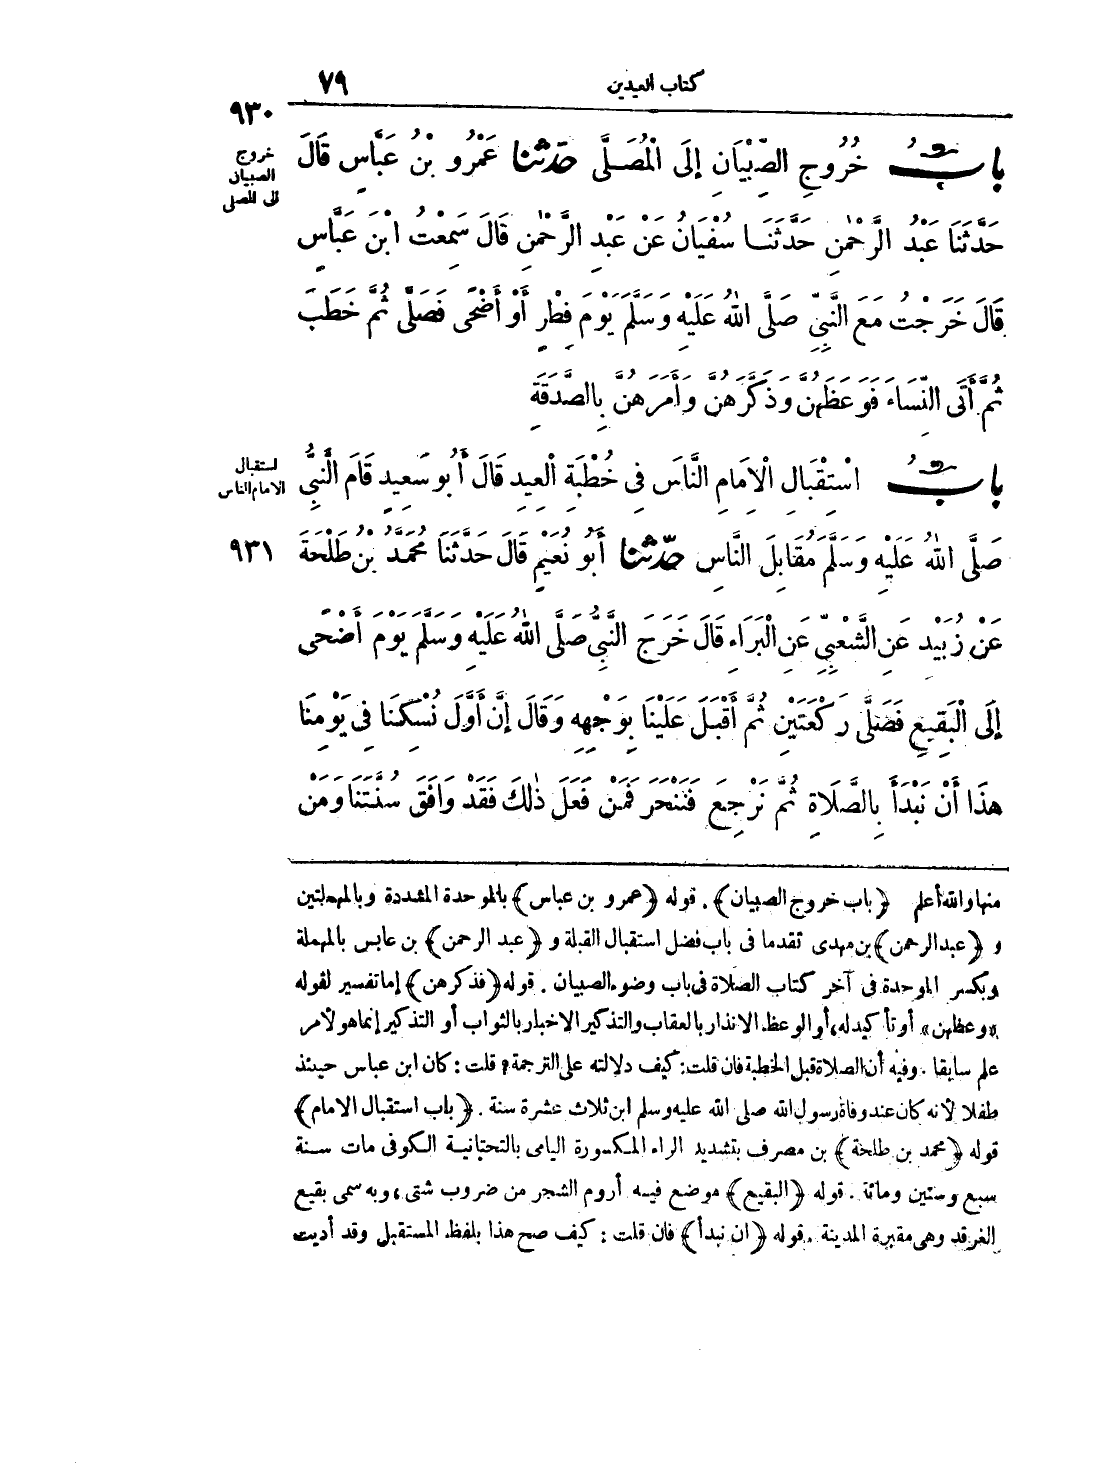 كتاب العيدين ٧٩
٩٣٠
خروج
الصبيان
إلى المصلى
بابٌ خُرُوجِ الصِّبْيَانِ إِلَى الْمُصَلَّى حَدَّثَنَا عَمْرُو بْنُ عَبَّاسٍ قَالَ
حَدَّثَنَا عَبْدُ الرَّحْمٰنِ حَدَّثَنَا سُفْيَانُ عَنْ عَبْدِ الرَّحْمٰنِ قَالَ سَمِعْتُ ابْنَ عَبَّاسٍ
قَالَ خَرَجْتُ مَعَ النَّبِيِّ صَلَّى اللهُ عَلَيْهِ وَسَلَّمَ يَوْمَ فِطْرٍ أَوْ أَضْحَى فَصَلَّى ثُمَّ خَطَبَ
ثُمَّ أَتَى النِّسَاءَ فَوَعَظَهُنَّ وَذَكَّرَهُنَّ وَأَمَرَهُنَّ بِالصَّدَقَةِ
استقبال
الامام الناس
بابٌ اسْتِقْبَالِ الْاِمَامِ النَّاسَ فِي خُطْبَةِ الْعِيدِ قَالَ أَبُو سَعِيدٍ قَامَ النَّبِيُّ
٩٣١
صَلَّى اللهُ عَلَيْهِ وَسَلَّمَ مُقَابِلَ النَّاسِ حَدَّثَنَا أَبُو نُعَيْمٍ قَالَ حَدَّثَنَا مُحَمَّدُ بْنُ طَلْحَةَ
عَنْ زُبَيْدٍ عَنِ الشَّعْبِيِّ عَنِ الْبَرَاءِ قَالَ خَرَجَ النَّبِيُّ صَلَّى اللهُ عَلَيْهِ وَسَلَّمَ يَوْمَ أَضْحَى
إِلَى الْبَقِيعِ فَصَلَّى رَكْعَتَيْنِ ثُمَّ أَقْبَلَ عَلَيْنَا بِوَجْهِهِ وَقَالَ إِنَّ أَوَّلَ نُسُكِنَا فِي يَوْمِنَا
هٰذَا أَنْ نَبْدَأَ بِالصَّلَاةِ ثُمَّ نَرْجِعَ فَنَنْحَرَ فَمَنْ فَعَلَ ذٰلِكَ فَقَدْ وَافَقَ سُنَّتَنَا وَمَنْ
منها والله أعلم (باب خروج الصبيان). قوله (عمرو بن عباس) بالموحدة المشددة وبالمهملتين
و (عبدالرحمن) بن مهدى تقدما فى باب فضل استقبال القبلة و (عبد الرحمن) بن عابس بالمهملة
وبكسر الموحدة فى آخر كتاب الصلاة فى باب وضوء الصبيان. قوله (فذكرهن) إما تفسير لقوله
«وعظهن» أو تأكيد له، أو الوعظ الانذار بالعقاب والتذكير الاخبار بالثواب أو التذكير إنما هو لأمر
علم سابقا. وفيه أن الصلاة قبل الخطبة فان قلت: كيف دلالته على الترجمة؟ قلت: كان ابن عباس حينئذ
طفلا لأنه كان عند وفاة رسول الله صلى الله عليه وسلم ابن ثلاث عشرة سنة. (باب استقبال الامام)
قوله (محمد بن طلحة) بن مصرف بتشديد الراء المكسورة اليامى بالتحتانية الكوفى مات سنة
سبع وستين ومائة. قوله (البقيع) موضع فيه أروم الشجر من ضروب شتى، وبه سمى بقيع
الغرقد وهى مقبرة المدينة. قوله (ان نبدأ) فان قلت: كيف صح هذا بلفظ المستقبل وقد أديت